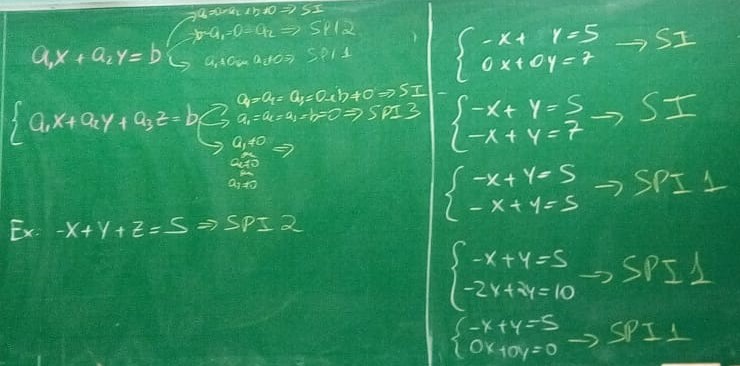 a₁=0=a₂ e b≠0 ⇒ SI
b=a₁=0=a₂ ⇒ SPI 2
a₁x + a₂y = b
a₁≠0 ou a₂≠0 ⇒ SPI 1
a₁=a₂=a₃=0 e b≠0 ⇒ SI
{ a₁x + a₂y + a₃z = b
a₁=a₂=a₃=b=0 ⇒ SPI 3
a₁≠0
ou
a₂≠0 ⇒
ou
a₃≠0
Ex. -x+y+z=5 ⇒ SPI 2
-x+ y=5
0x+0y=7 → SI
-x+ y=5
-x+y=7 → SI
-x+y=5
-x+y=5 → SPI 1
-x+y=5
-2x+2y=10 → SPI 1
-x+y=5
0x+0y=0 → SPI 1